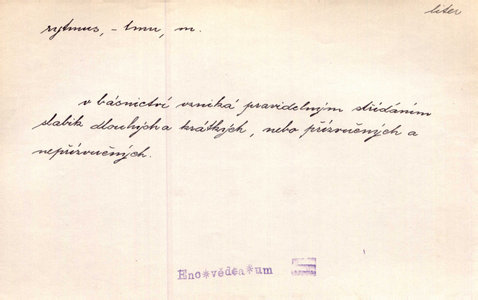 liter
rytmus, -tmu, m.
v básnictví vzniká pravidelným střídáním
slabik dlouhých a krátkých, nebo přízvučných a
nepřízvučných.
Enc*véd¢a*um